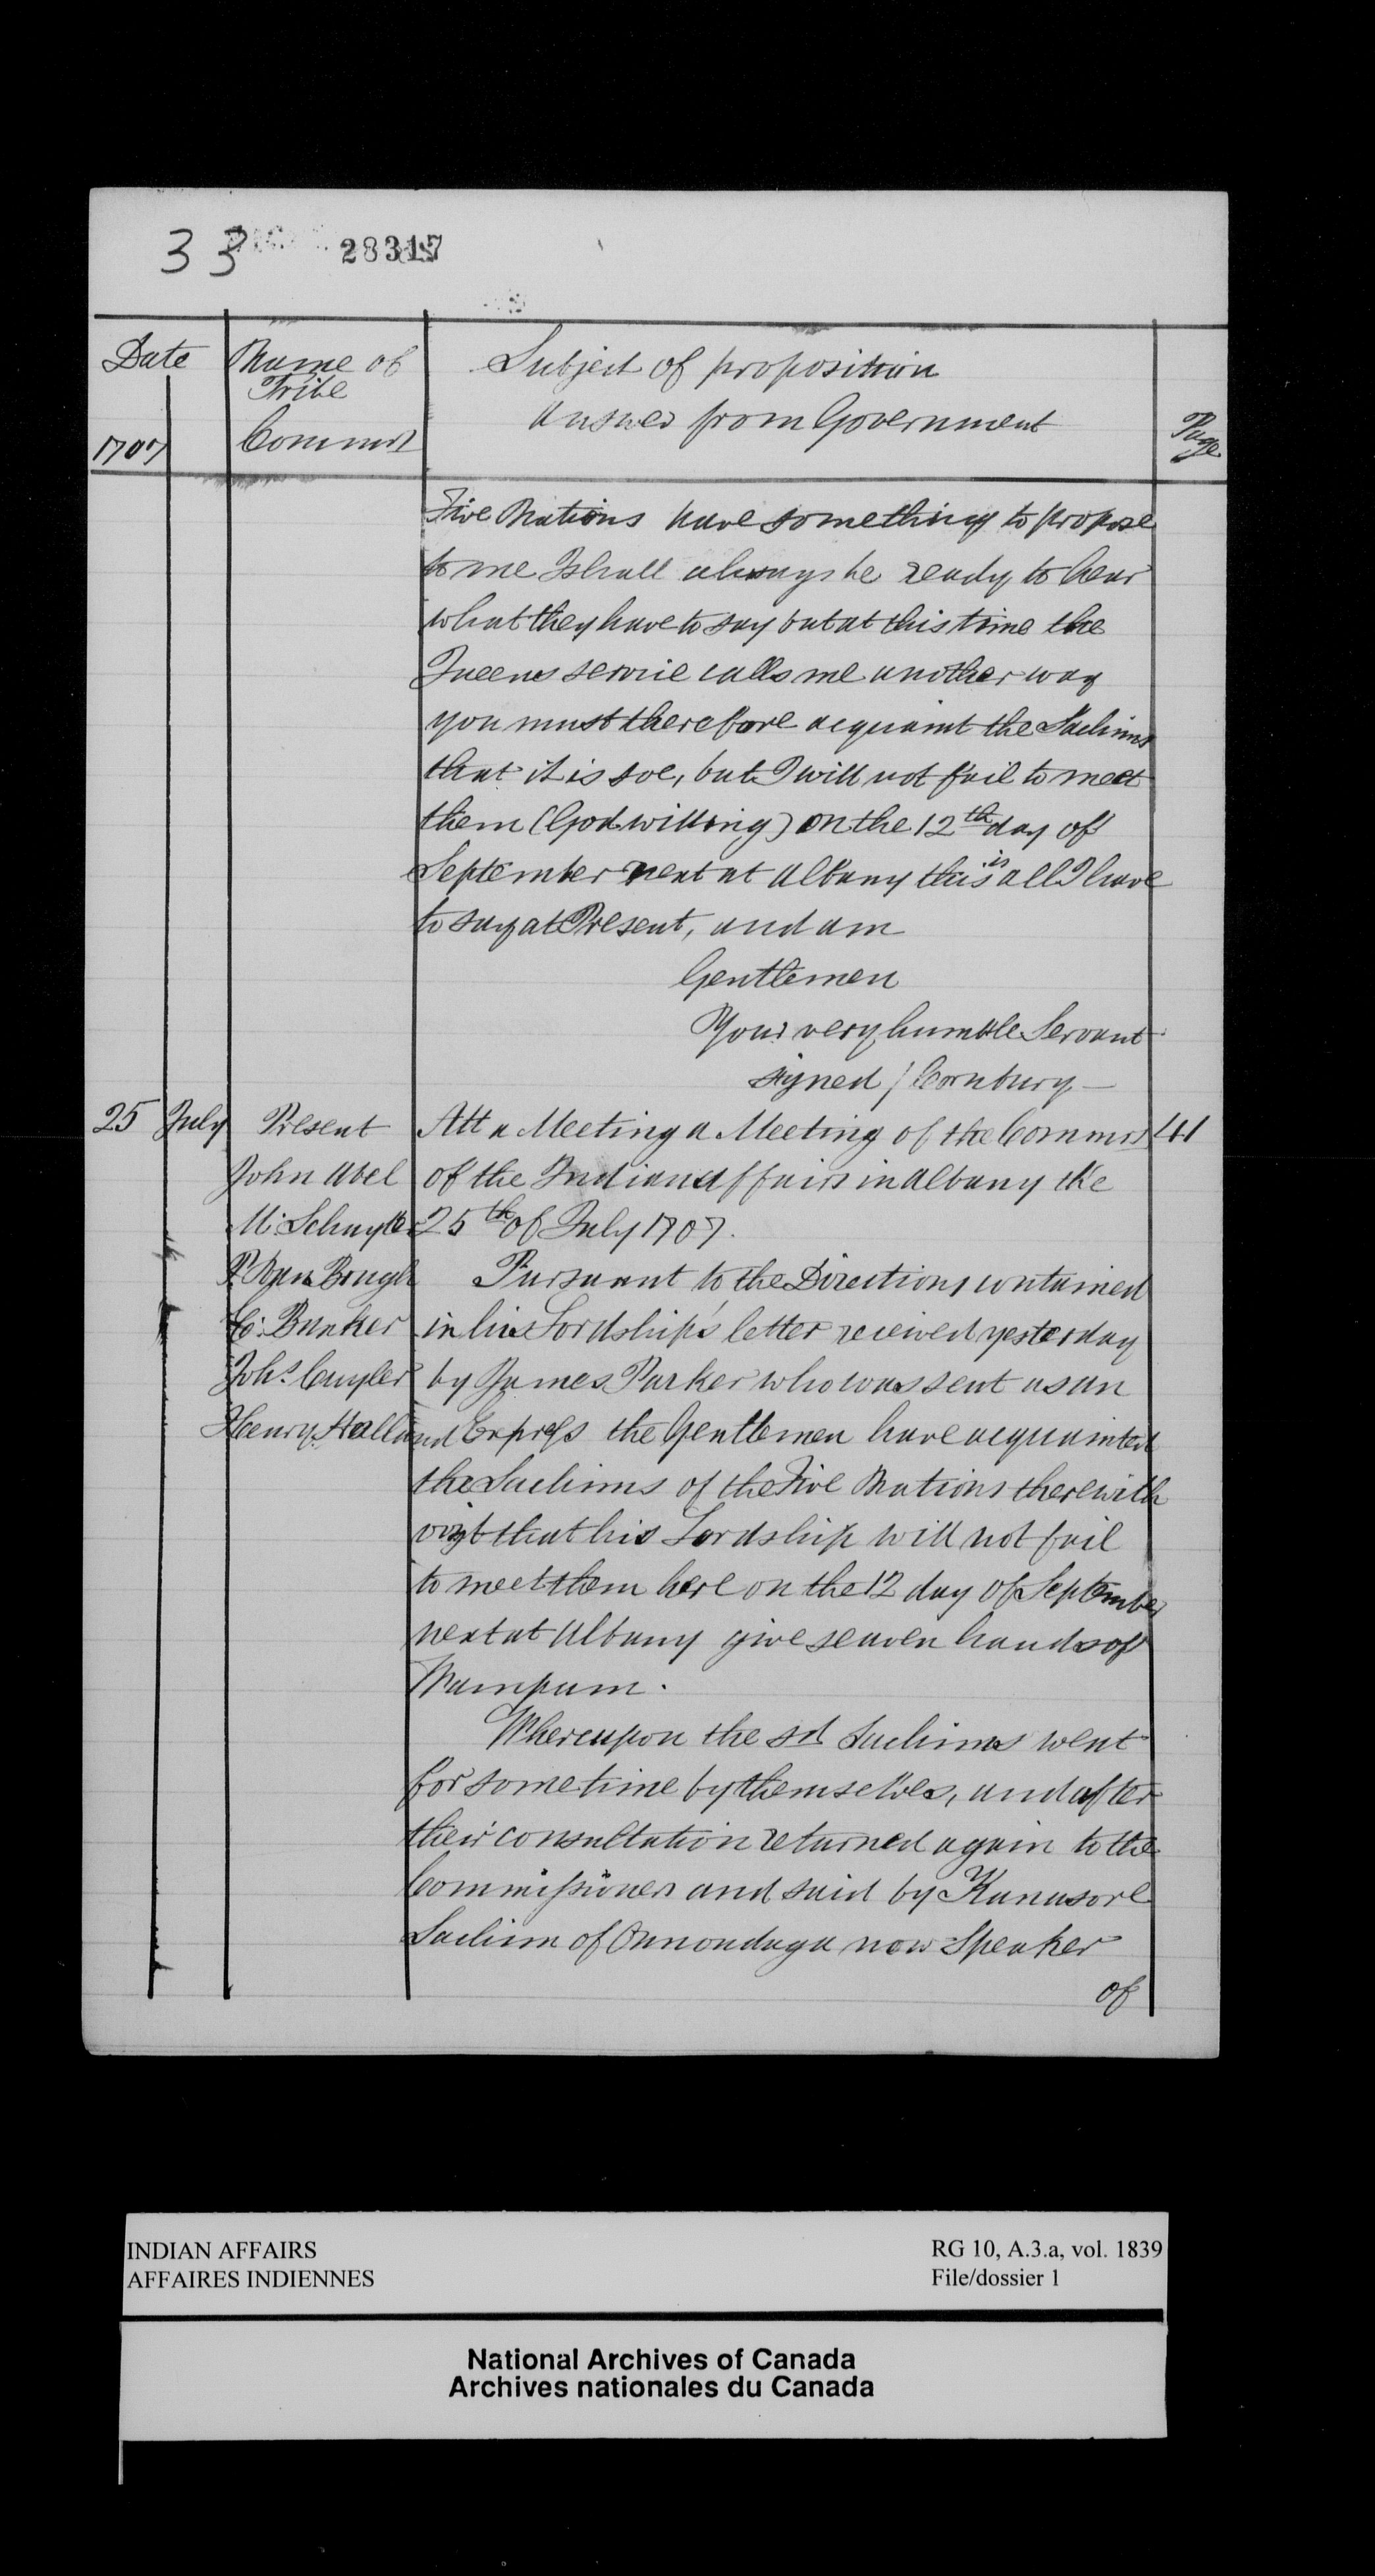 33 28317
Date Name of Subject of proposition
Tribe
1707 Commrs Answer from Government Page
Five Nations have something to propose
to me I shall always be ready to hear
what they have to say but at this time the
Queens service calls me another way
you must therefore acquaint the Sachims
that it is soe, but I will not fail to meet
them (God willing) on the 12th day of
September next at Albany this is all I have
to say at Present, and am
Gentlemen
Your very humble Servant
signed / Cornbury —
25 July Present Att a Meeting a Meeting of the Commrs 41
John Abel of the Indian affairs in Albany the
M: Schuyler 25th of July 1707.
P. Van Brugh Pursuant to the Directions contained
E: Banker in his Lordship's letter recieved yesterday
Johs. Cuyler by James Parker who was sent as an
Henry Holland Express the Gentlemen have acquainted
the Sachims of the Five Nations therewith
vizt that his Lordship will not fail
to meet them here on the 12 day of September
next at Albany give seaven hands of
Wampum.
Whereupon the sd Sachims went
for some time by themselves, and after
their consultation returned again to the
Commissioners and said by Kanasore
Sachim of Onnondaga now Speaker
of
INDIAN AFFAIRS RG 10, A.3.a, vol. 1839
AFFAIRES INDIENNES File/dossier 1
National Archives of Canada
Archives nationales du Canada